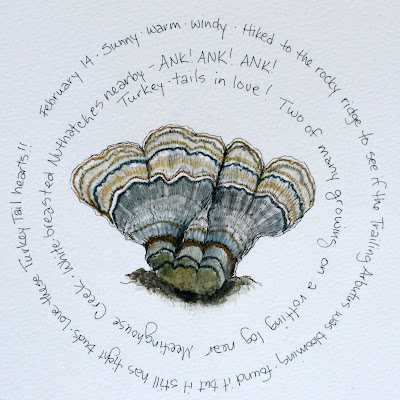 February 14 · Sunny · warm · windy · Hiked to the rocky ridge to see if the Trailing Arbutus was blooming · found it but it still has tight buds. Love these Turkey Tail hearts!!
Turkey-tails in love! Two of many growing on a rotting log near Meetinghouse Creek. White-breasted Nuthatches nearby - ANK! ANK! ANK!